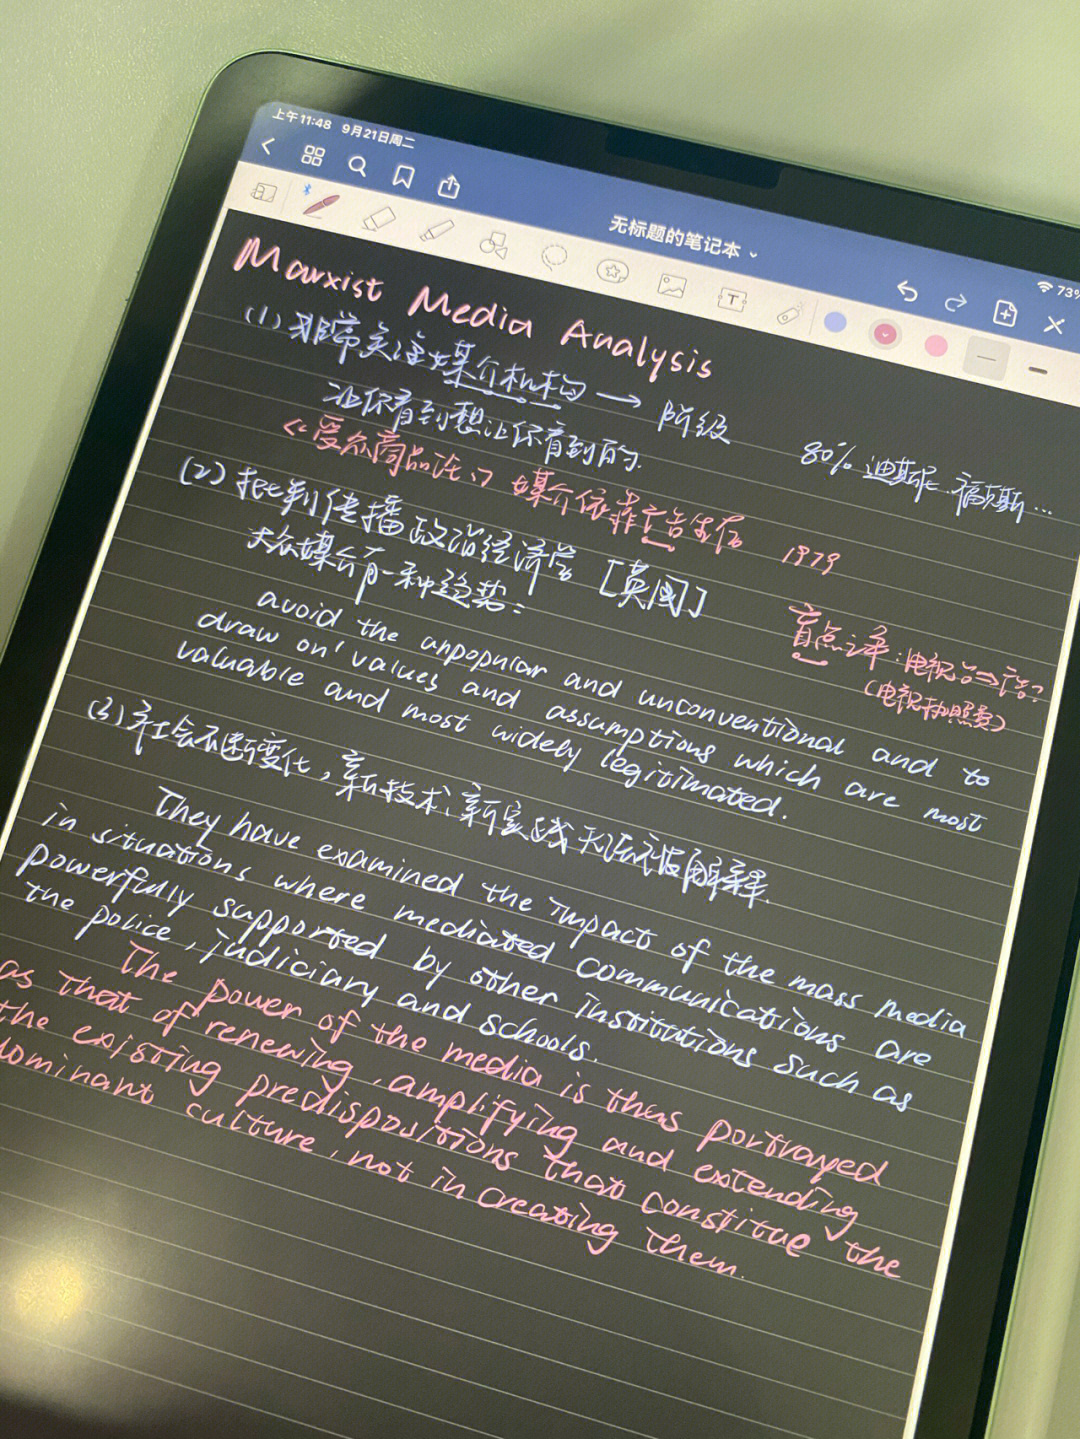 上午11:48 9月21日周二
73%
无标题的笔记本
Marxist Media Analysis
(1) 非常关注媒介机构 → 阶级
让你看到想让你看到的. 80% 迪斯尼. 福克斯...
《受众商品论》 媒介依靠广告生存 1979
(2) 批判传播政治经济学 [英国]
大众媒介有一种趋势:
盲点之争: 电视台⇒广告?
(电视执照费)
avoid the unpopular and unconventional and to
draw on' values and assumptions which are most
valuable and most widely legitimated.
(3) 社会不断变化, 新技术、新实践无法被解释.
They have examined the impact of the mass media
in situations where mediated communications are
powerfully supported by other institutions such as
the police, judiciary and schools.
The power of the media is thus portrayed
as that of renewing, amplifying and extending
the existing predispositions that constitue the
dominant culture, not in creating them.